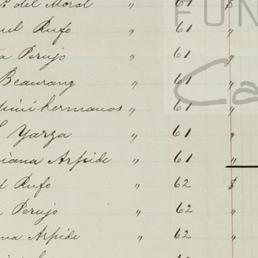 del Moral " 61 $
Rufo " 61 "
Perujo " 61 "
Beaurang " 61 "
hermanos " 61 "
Yarza " 61 "
Arpide " 61 "
Rufo " 62 $
Perujo " 62 "
Arpide " 62 "
FUN
Ca